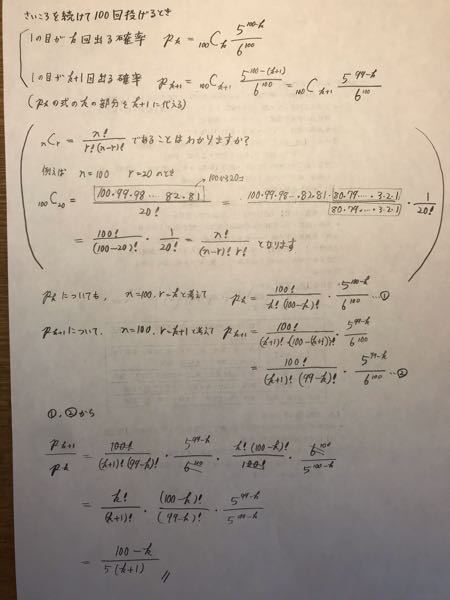 さいころを続けて100回投げるとき
1の目がk回出る確率 Pk = 100Ck 5^(100-k) / 6^100
1の目がk+1回出る確率 Pk+1 = 100Ck+1 5^(100-(k+1)) / 6^100 = 100Ck+1 5^(99-k) / 6^100
(Pkの式のkの部分をk+1に代える)
nCr = n! / r!(n-r)! であることはわかりますか?
例えば n=100 r=20のとき
100から20コ
100C20 = 100・99・98…82・81 / 20! = 100・99・98…82・81・80・79…3・2・1 / 80・79…3・2・1 ・ 1 / 20!
= 100! / (100-20)! ・ 1 / 20! = n! / (n-r)! r! となります
Pkについても、 n=100, r=kと考えて Pk = 100! / k!(100-k)! ・ 5^(100-k) / 6^100 …①
Pk+1について、 n=100, r=k+1と考えて Pk+1 = 100! / (k+1)!{100-(k+1)}! ・ 5^(99-k) / 6^100
= 100! / (k+1)!(99-k)! ・ 5^(99-k) / 6^100 …②
①,②から
Pk+1 / Pk = 100! / (k+1)!(99-k)! ・ 5^(99-k) / 6^100 ・ k!(100-k)! / 100! ・ 6^100 / 5^(100-k)
= k! / (k+1)! ・ (100-k)! / (99-k)! ・ 5^(99-k) / 5^(100-k)
= 100-k / 5(k+1) //